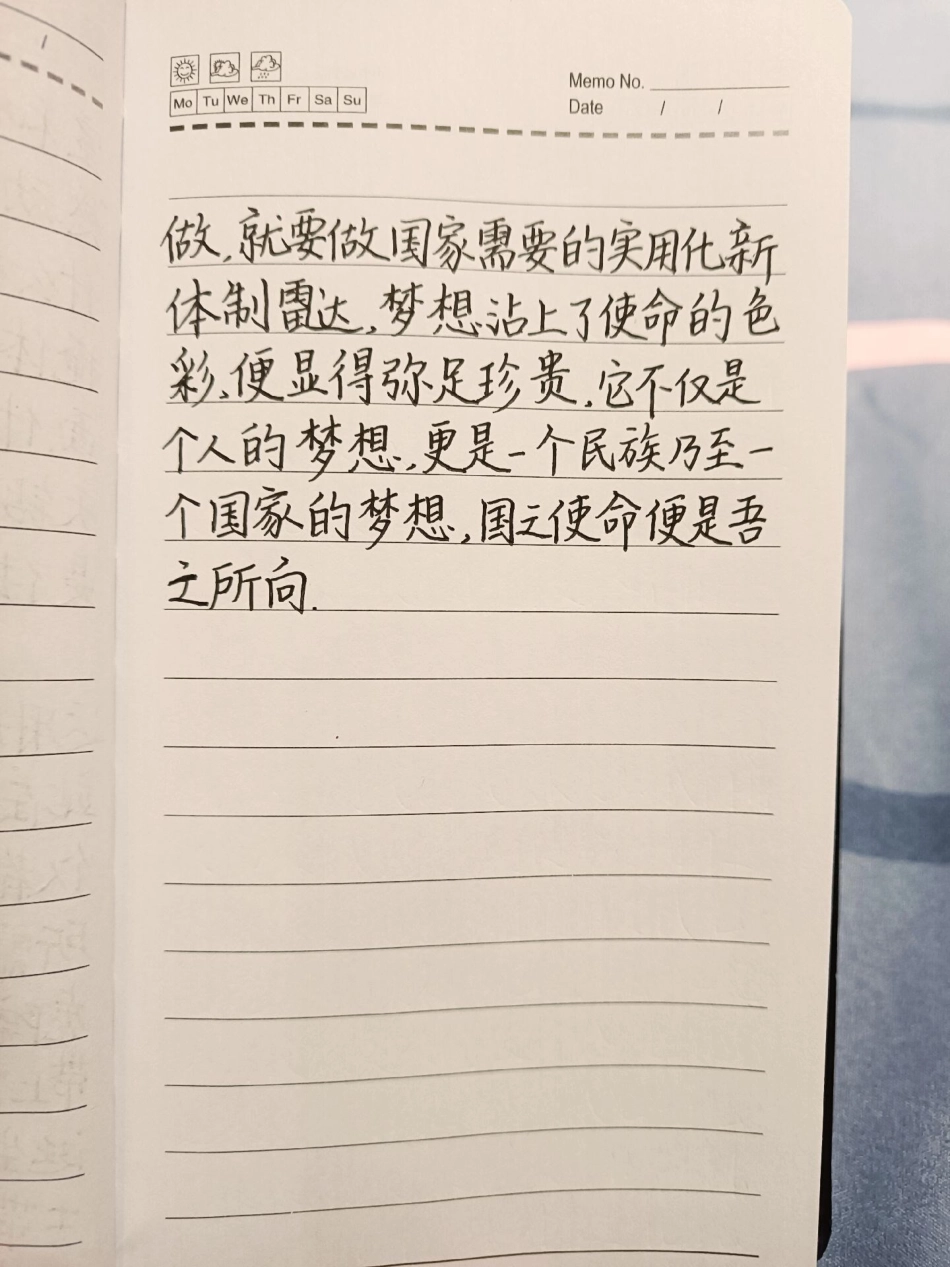 Mo Tu We Th Fr Sa Su
Memo No.
Date / /
做,就要做国家需要的实用化新
体制雷达,梦想沾上了使命的色
彩,便显得弥足珍贵,它不仅是
个人的梦想,更是一个民族乃至一
个国家的梦想,国之使命便是吾
之所向.